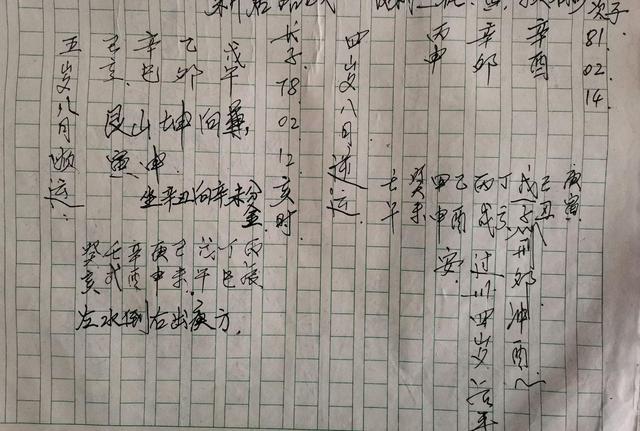 次子
81.
02
14
辛酉
辛卯
丙申
四岁八月逆运
庚寅
己丑
戊子
丁亥
丙戌
乙酉
甲申
癸未
壬午
刑卯冲酉
四岁
安
长子
78
02
12
亥时
戊午
乙卯
辛巳
己亥
五岁八月顺运
艮山坤向兼
寅申
坐辛丑向辛未分金
丙辰
丁巳
戊午
己未
庚申
辛酉
壬戌
癸亥
左水倒右出庚方